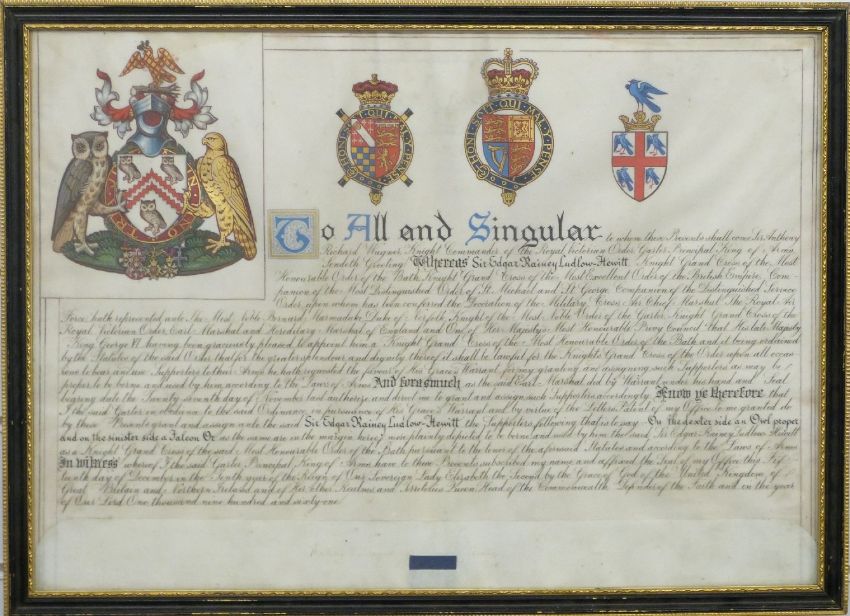 HONI · SOIT · QUI · MAL · Y · PENSE
HONI · SOIT · QUI · MAL · Y · PENSE
To All and Singular to whom these Presents shall come Sir Anthony
Richard Wagner Knight Commander of The Royal Victorian Order Garter Principal King of Arms
Sendeth Greeting Whereas Sir Edgar Rainey Ludlow-Hewitt Knight Grand Cross of the Most
Honourable Order of the Bath Knight Grand Cross of the Most Excellent Order of the British Empire Com-
panion of the Most Distinguished Order of St. Michael and St. George Companion of the Distinguished Service
Order upon whom has been conferred the Decoration of the Military Cross Air Chief Marshal The Royal Air
Force hath represented unto The Most Noble Bernard Marmaduke Duke of Norfolk Knight of the Most Noble Order of the Garter Knight Grand Cross of the
Royal Victorian Order Earl Marshal and Hereditary Marshal of England and One of Her Majesty's Most Honourable Privy Council that His late Majesty
King George VI having been graciously pleased to appoint him a Knight Grand Cross of the Most Honourable Order of the Bath and it being ordained
by the Statutes of the said Order that for the greater splendour and dignity thereof it shall be lawful for the Knights Grand Cross of the Order upon all occas-
ions to bear and use Supporters to their Arms he hath requested the favour of His Grace's Warrant for my granting and assigning such Supporters as may be
proper to be borne and used by him according to the Laws of Arms And forasmuch as the said Earl Marshal did by Warrant under his hand and Seal
bearing date the Twenty seventh day of November last authorize and direct me to grant and assign such Supporters accordingly Know ye therefore that
I the said Garter in obedience to the said Ordinance in pursuance of His Grace's Warrant and by virtue of the Letters Patent of my Office to me granted do
by these Presents grant and assign unto the said Sir Edgar Rainey Ludlow-Hewitt the Supporters following that is to say On the dexter side an Owl proper
and on the sinister side a Falcon Or as the same are in the margin hereof more plainly depicted to be borne and used by him the said Sir Edgar Rainey Ludlow Hewitt
as a Knight Grand Cross of the said Most Honourable Order of the Bath pursuant to the tenor of the aforesaid Statutes and according to the Laws of Arms
In witness whereof I the said Garter Principal King of Arms have to these Presents subscribed my name and affixed the Seal of my Office this Fif-
teenth day of December in the Tenth year of the Reign of Our Sovereign Lady Elizabeth the Second by the Grace of God of the United Kingdom of
Great Britain and Northern Ireland and of Her other Realms and Territories Queen Head of the Commonwealth Defender of the Faith and in the year
of Our Lord One thousand nine hundred and sixty one